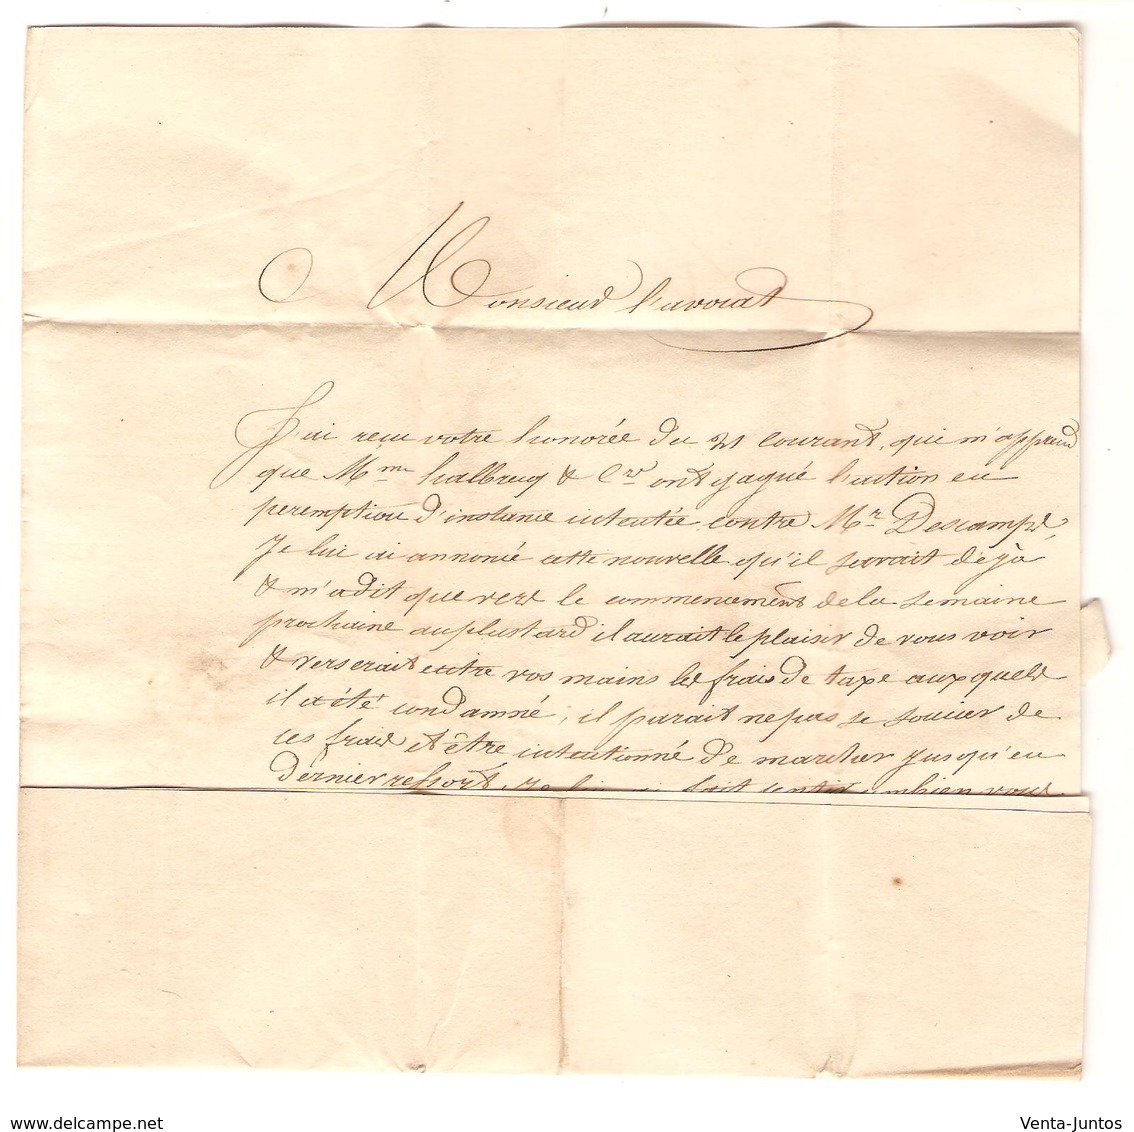 Monsieur l'avocat
J'ai recu votre honorée du 21 Courant, qui m'apprend
que Mme halbrecq & Crs ont gagné l'action en
peremption d'instance intentée contre Mr Descamps,
Je lui ai annoncé cette nouvelle qu'il savait déjà
& m'a dit que vers le commencement de la semaine
prochaine au plus tard il aurait le plaisir de vous voir
& verserait entre vos mains les frais de taxe auxquels
il a été condamné; il parait ne pas se soucier de
ces frais et être intentionné de marcher jusqu'en
dernier ressort. Je lui ai fait sentir combien vous
www.delcampe.net
Venta-Juntos